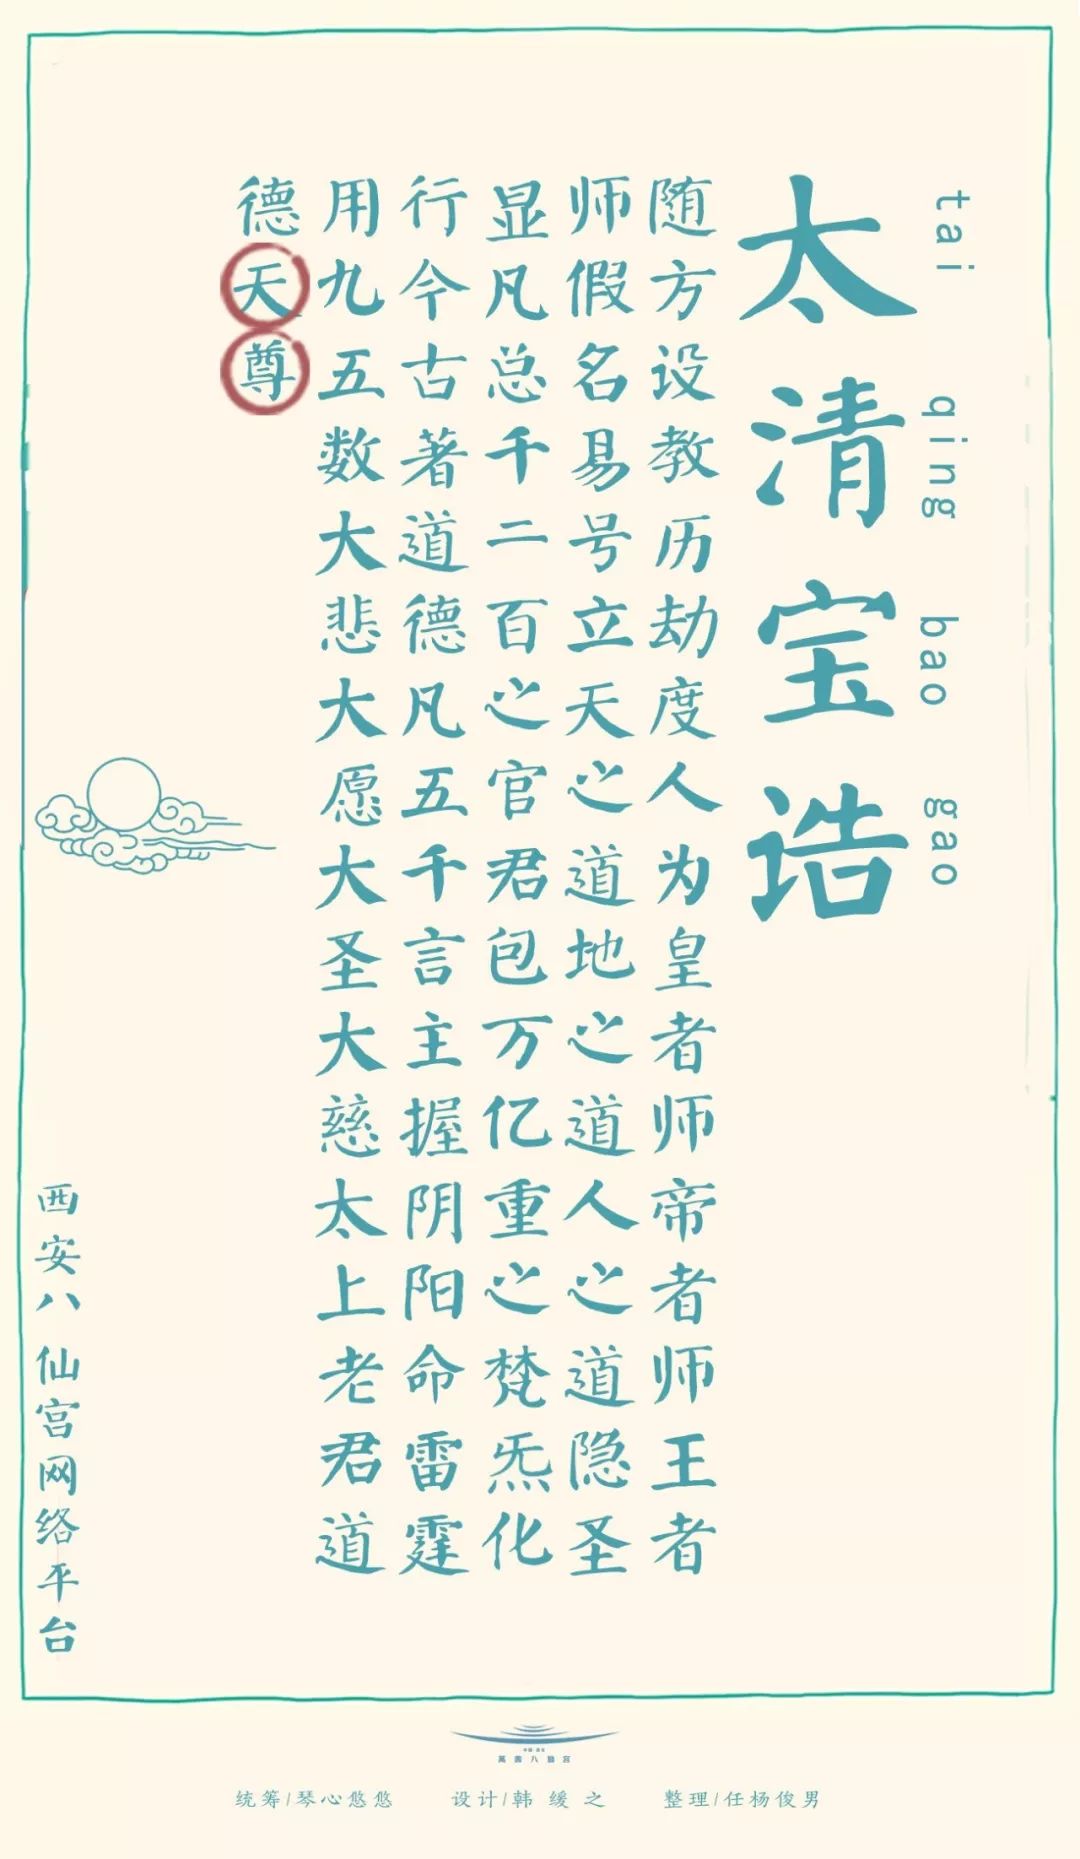 太清宝诰
tai qing bao gao
随方设教历劫度人为皇者师帝者师王者
师假名易号立天之道地之道人之道隐圣
显凡总千二百之官君包万亿重之梵炁化
行今古著道德凡五千言主握阴阳命雷霆
用九五数大悲大愿大圣大慈太上老君道
德天尊
西安八仙宫网络平台
萬壽八僊宮
统筹/琴心悠悠 设计/韩缓之 整理/任杨俊男